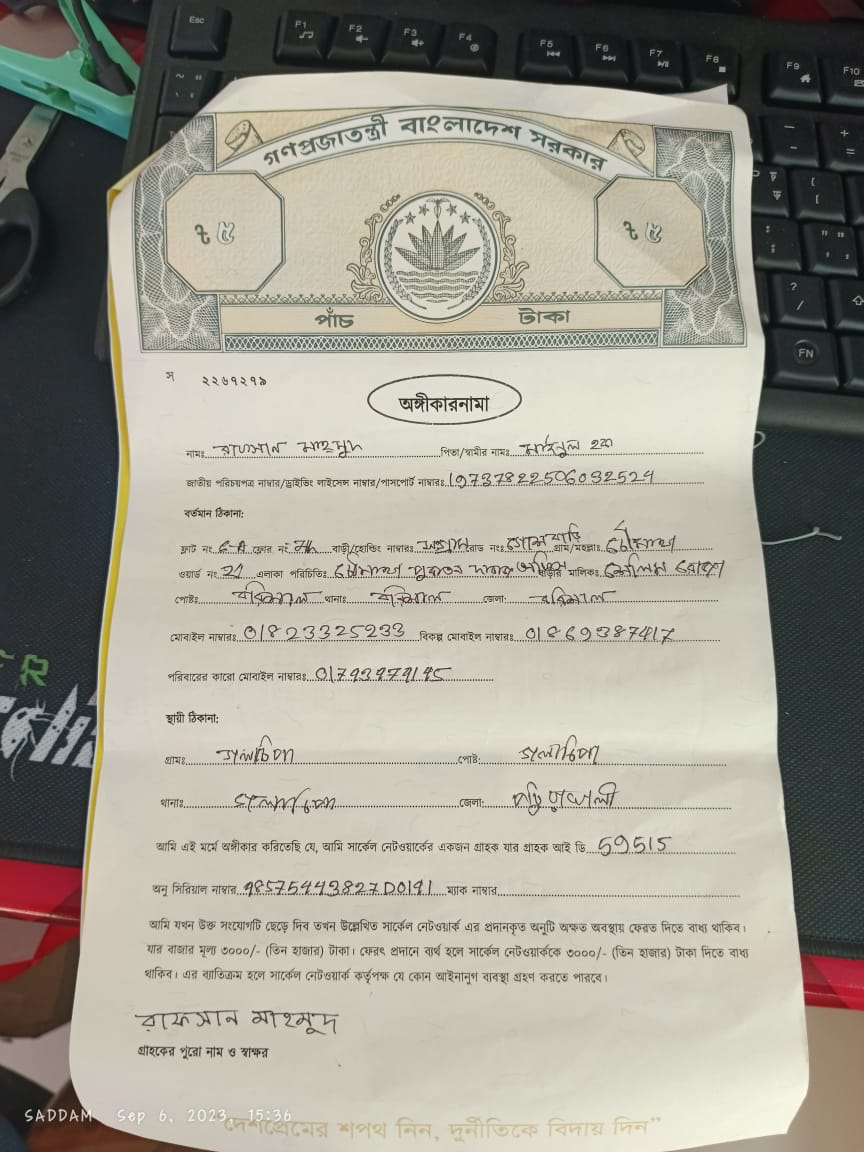 Esc F1 F2 F3 F4 F5 F6 F7 F8 F9 F10
FN
গণপ্রজাতন্ত্রী বাংলাদেশ সরকার
৳ ৫ ৳ ৫
পাঁচ টাকা
স ২২৬৭২৭৯
অঙ্গীকারনামা
নামঃ রাফসান মাহমুদ পিতা/স্বামীর নামঃ মাইনুল হক
জাতীয় পরিচয়পত্র নাম্বার/ড্রাইভিং লাইসেন্স নাম্বার/পাসপোর্ট নাম্বারঃ 19737822506032524
বর্তমান ঠিকানা:
ফ্লাট নং 6-A ফ্লোর নং 7th বাড়ী/হোল্ডিং নাম্বারঃ রোড নংঃ গ্রাম/মহল্লাঃ
ওয়ার্ড নং 21 এলাকা পরিচিতিঃ পুরাতন বাড়ীর মালিকঃ
পোষ্টঃ বরিশাল থানাঃ বরিশাল জেলা: বরিশাল
মোবাইল নাম্বারঃ 01823325233 বিকল্প মোবাইল নাম্বারঃ 01869387417
পরিবারের কারো মোবাইল নাম্বারঃ
স্থায়ী ঠিকানা:
গ্রামঃ গলাচিপা পোষ্ট: গলাচিপা
থানাঃ গলাচিপা জেলা: পটুয়াখালী
আমি এই মর্মে অঙ্গীকার করিতেছি যে, আমি সার্কেল নেটওয়ার্কের একজন গ্রাহক যার গ্রাহক আই ডি 59515
অনু সিরিয়াল নাম্বার 48575443827D0141 ম্যাক নাম্বার
আমি যখন উক্ত সংযোগটি ছেড়ে দিব তখন উল্লেখিত সার্কেল নেটওয়ার্ক এর প্রদানকৃত অনুটি অক্ষত অবস্থায় ফেরত দিতে বাধ্য থাকিব।
যার বাজার মূল্য ৩০০০/- (তিন হাজার) টাকা। ফেরৎ প্রদানে ব্যর্থ হলে সার্কেল নেটওয়ার্ককে ৩০০০/- (তিন হাজার) টাকা দিতে বাধ্য
থাকিব। এর ব্যাতিক্রম হলে সার্কেল নেটওয়ার্ক কর্তৃপক্ষ যে কোন আইনানুগ ব্যবস্থা গ্রহণ করতে পারবে।
রাফসান মাহমুদ
গ্রাহকের পুরো নাম ও স্বাক্ষর
SADDAM Sep 6, 2023, 15:36
দেশপ্রেমের শপথ নিন, দুর্নীতিকে বিদায় দিন”